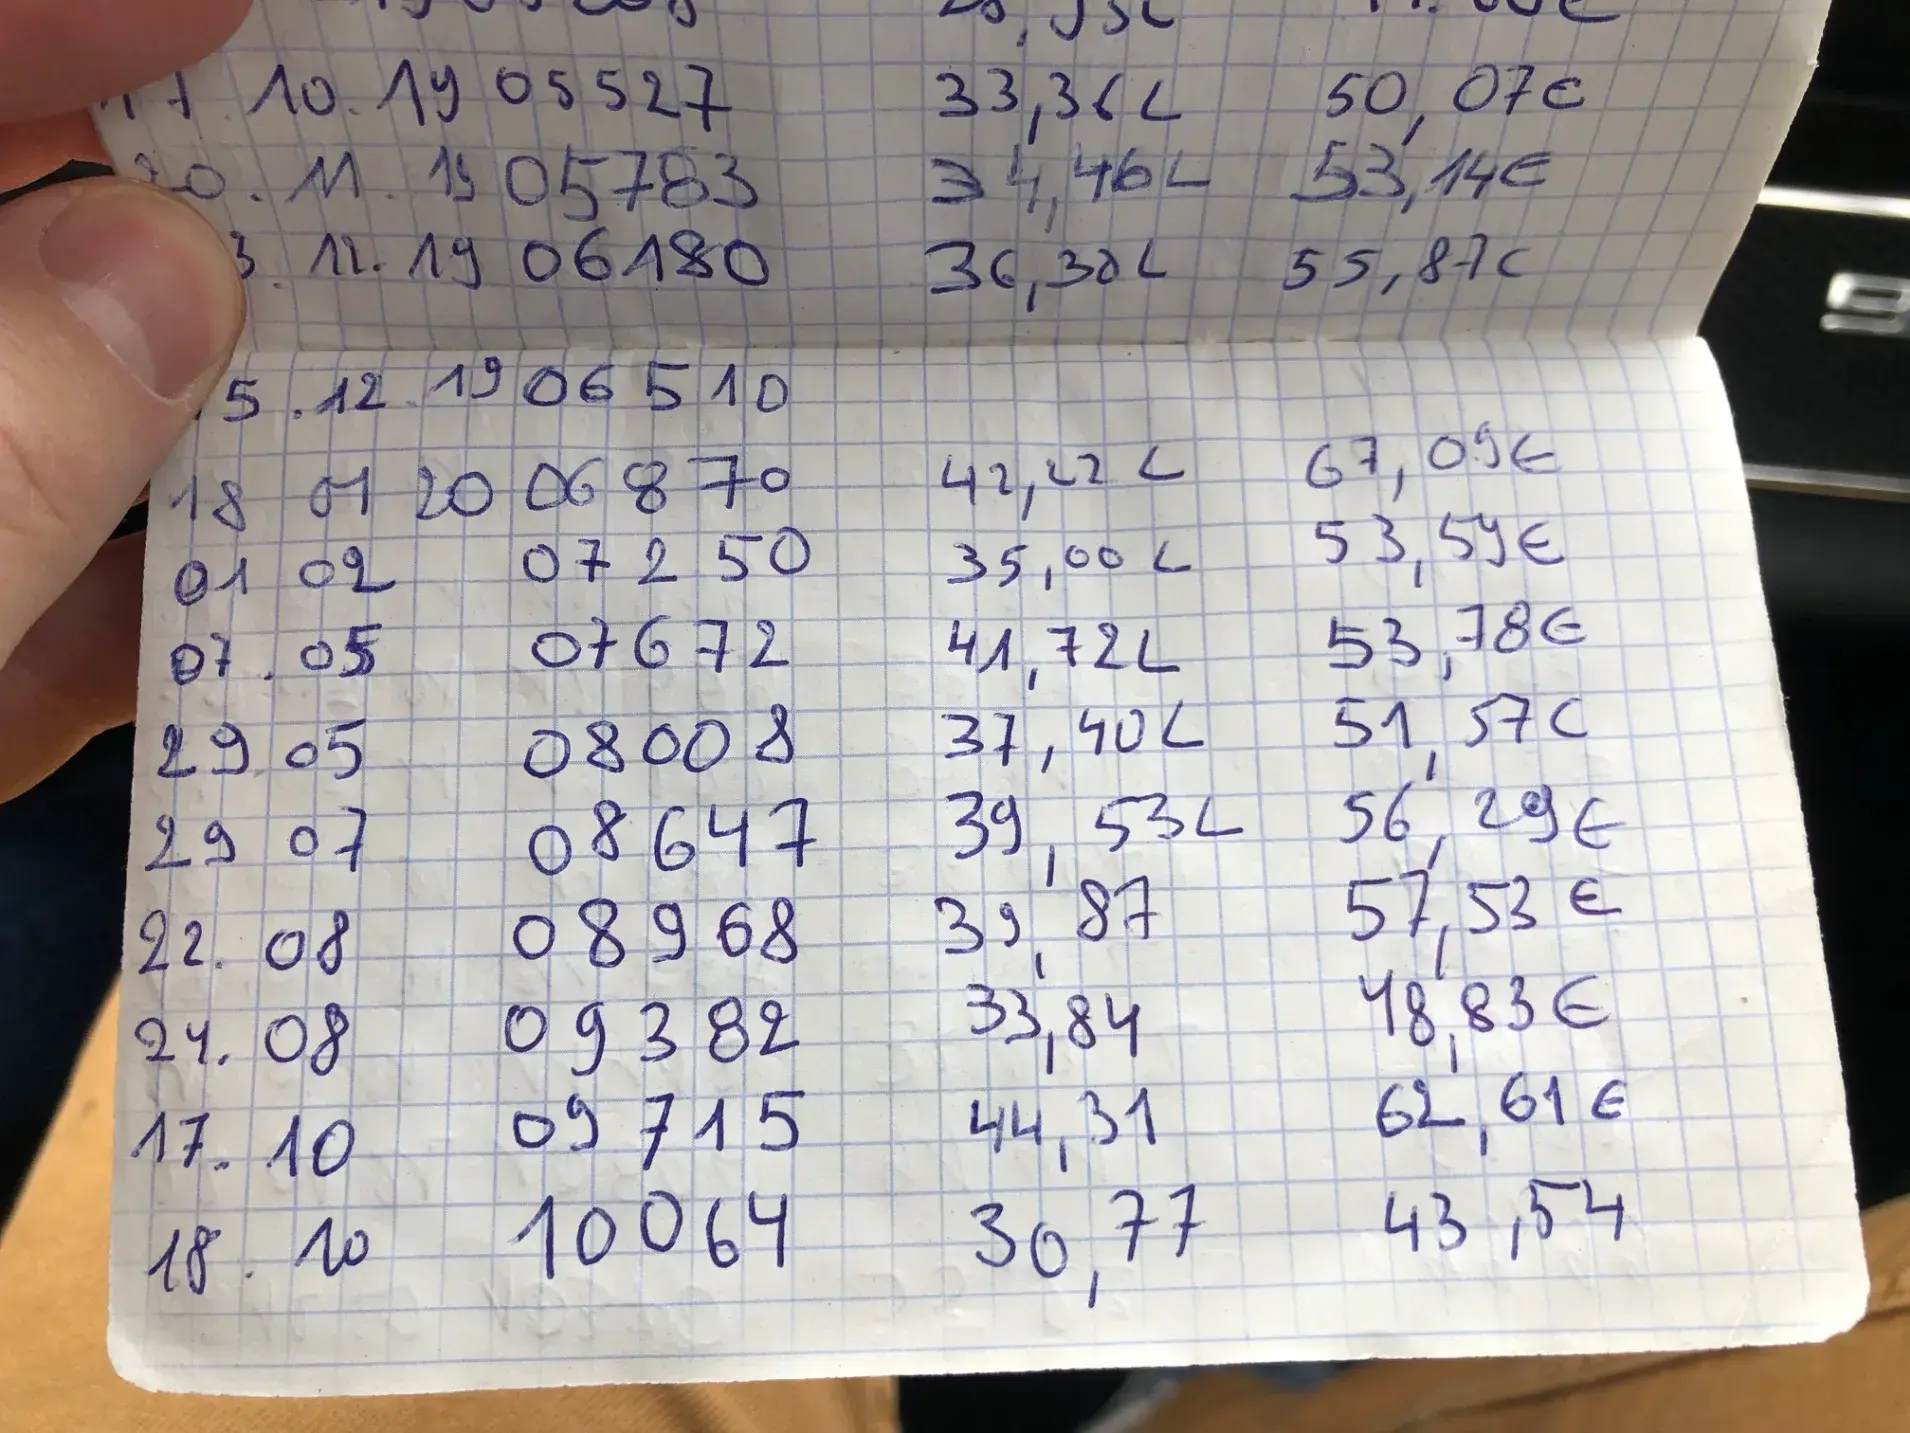 10.19 05527 33,36L 50,07€
20.11.19 05783 34,46L 53,14€
3.12.19 06180 36,30L 55,87€
5.12.19 06510
18 01 20 06870 42,22L 67,09€
01 02 07250 35,00L 53,59€
07.05 07672 41,72L 53,78€
29 05 08008 37,40L 51,57€
29 07 08647 39,53L 56,29€
22.08 08968 39,87 57,53€
24.08 09382 33,84 48,83€
17.10 09715 44,31 62,61€
18.10 10064 30,77 43,54